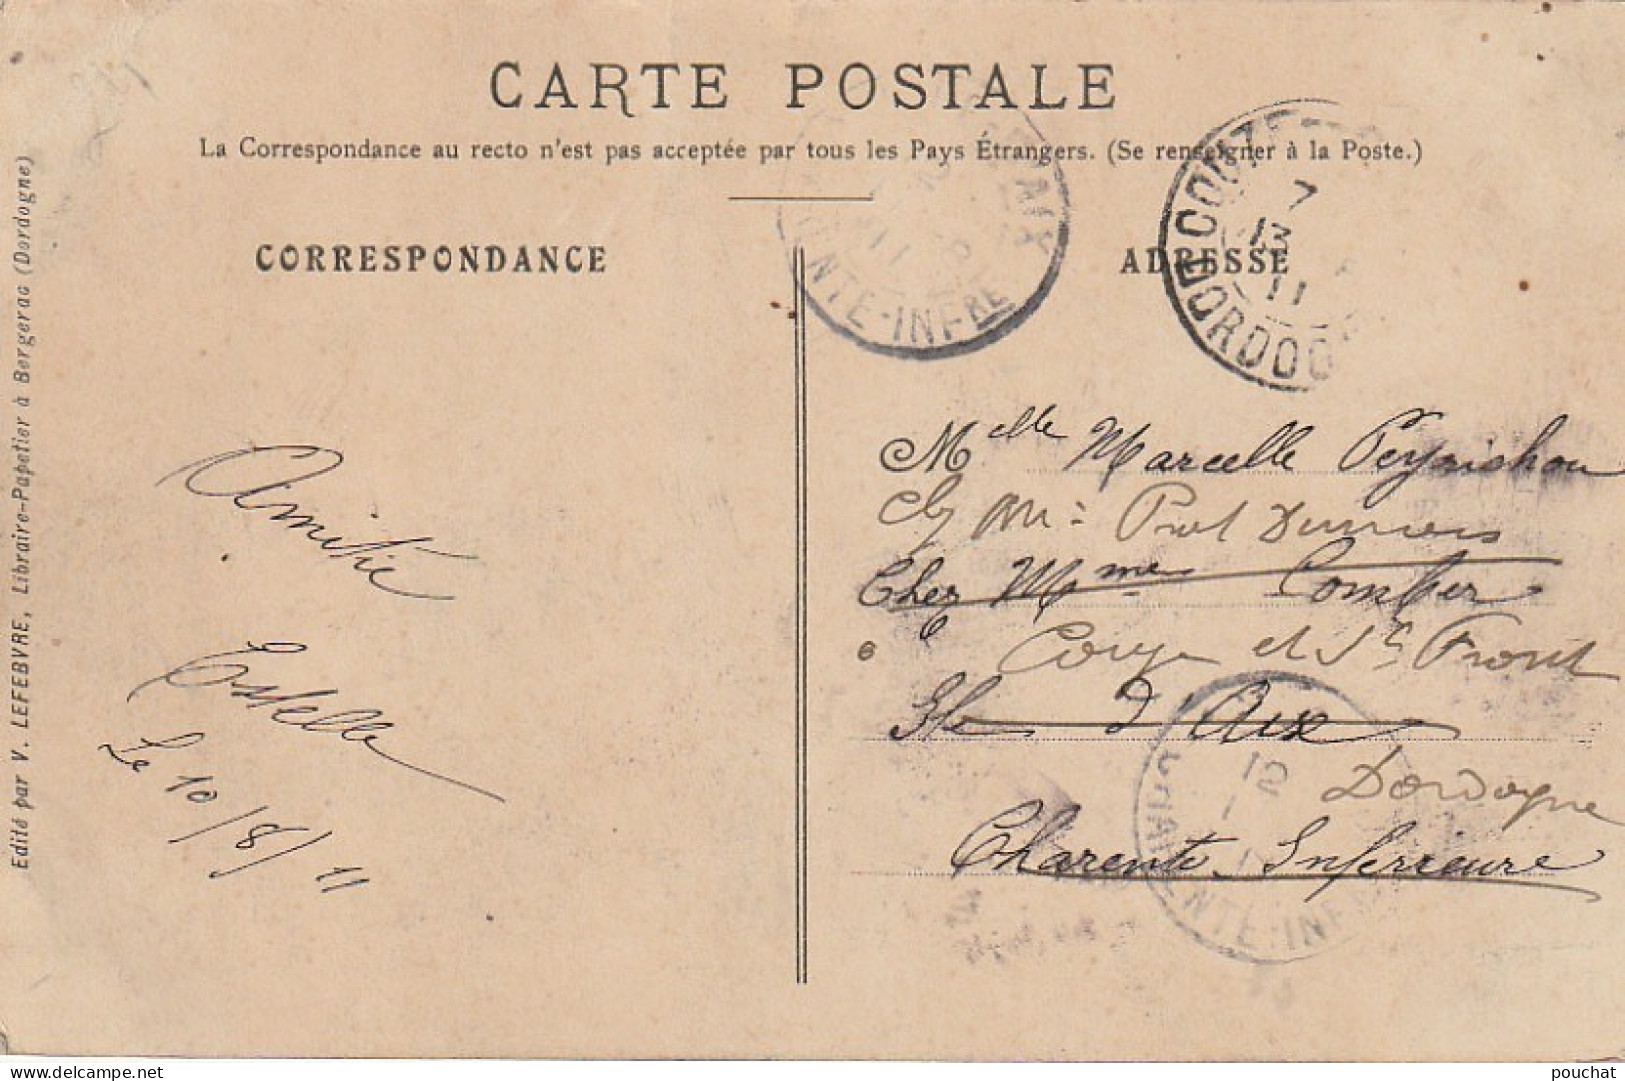 CARTE POSTALE
La Correspondance au recto n'est pas acceptée par tous les Pays Étrangers. (Se renseigner à la Poste.)
CORRESPONDANCE
ADRESSE
Edité par V. LEFEBVRE, Libraire-Papetier à Bergerac (Dordogne)
Amitié
Estelle
Le 10/8/11
COUZE
7
13
11
DORDOG
D'AIX
NTE-INFRE
Melle Marcelle Peyrichou
chez Mr
Chez Mme Combes
Couze et St Front
Ile d'Aix
Dordogne
Charente-Inférieure
12
NTE-INF
delcampe.net
pouchat